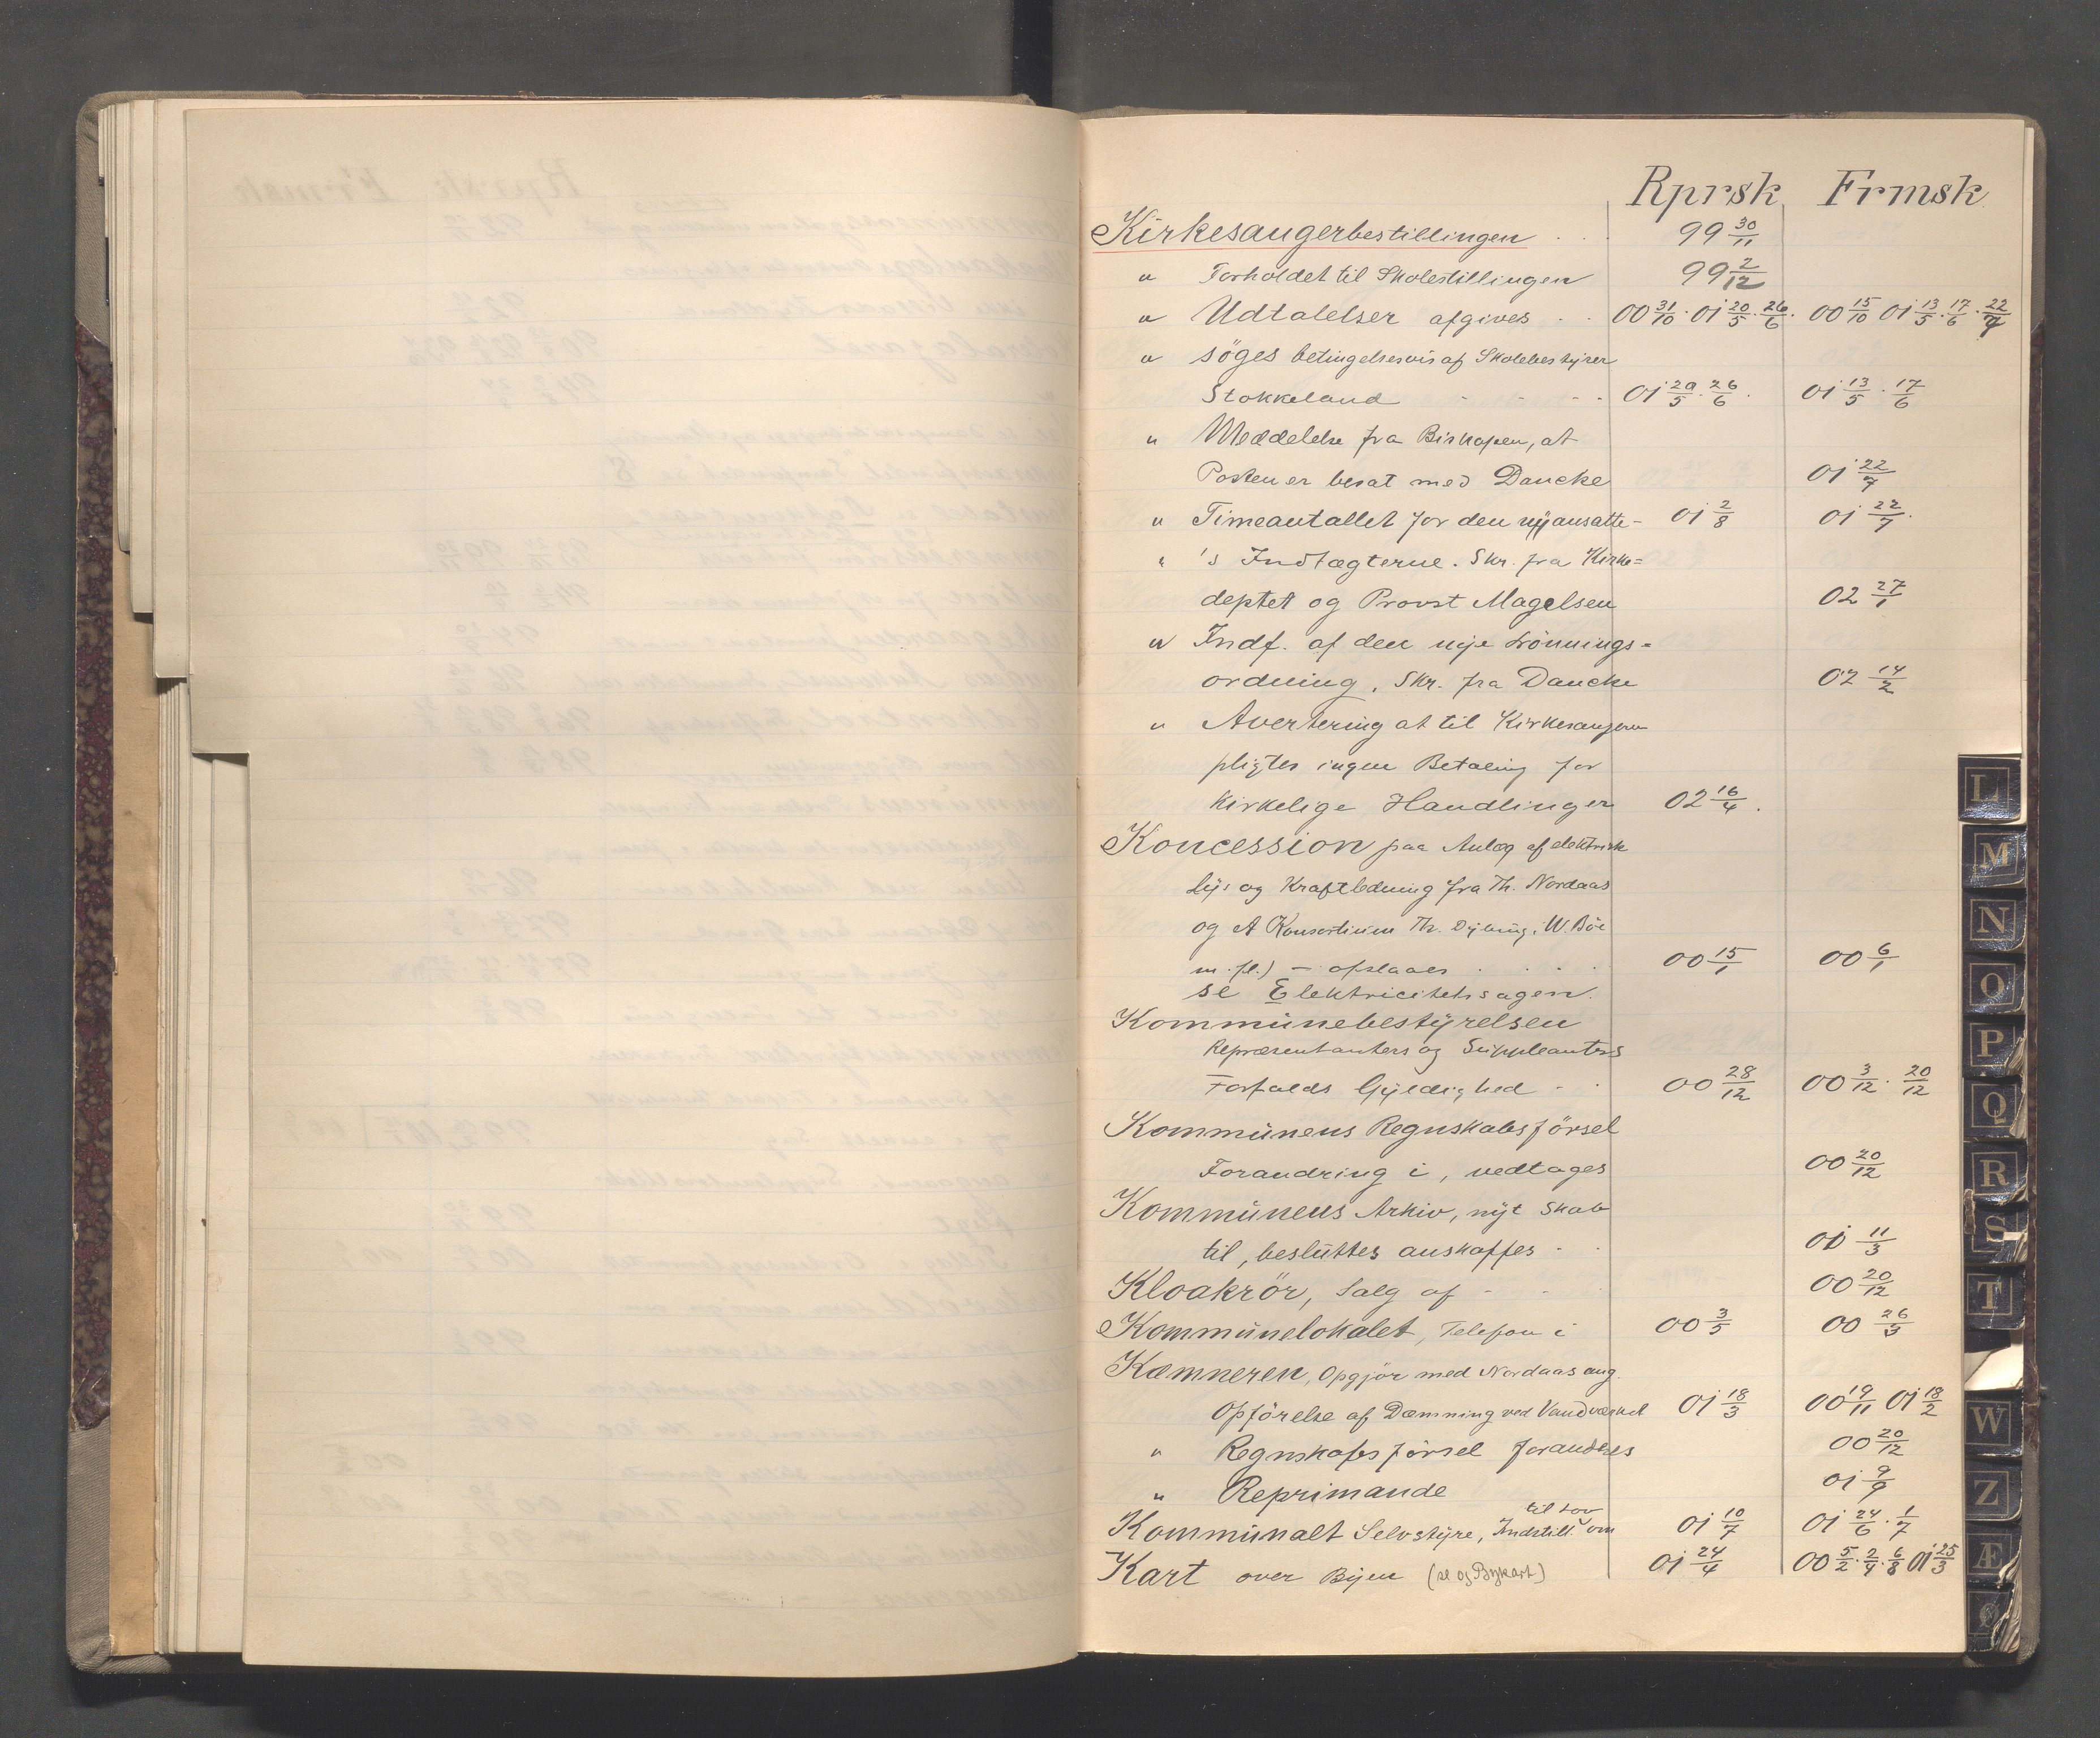 Rprsk Frmsk
Kirkesangerbestillingen . . . 99 30/11
" Forholdet til Skolestillingen 99 2/12
" Udtalelser afgives . . 00 31/10 . 01 20/5 . 26/6 . 00 15/10 01 13/5 . 17/6 . 22/7
" söges betingelsesvis af Skolebestyrer
Stokkeland - - - . 01 20/5 . 26/6 . 01 13/5 . 17/6
" Meddelelse fra Biskopen, at
Posten er besat med Dancke 01 22/7
" Timeantallet for den nyansatte - 01 2/8 01 22/7 .
" 's Indtægterne. Skr. fra Kirke=
deptet og Provst Magelsen 02 27/1
" Indf. af den nye Lönnings=
ordning, Skr. fra Dancke 02 14/2
" Avertering at til Kirkesangeren
pligtes ingen Betaling for
Kirkelige Handlinger 02 16/4 .
Koncession paa Anlæg af elektrisk
Lys og Kraftledning fra Th. Nordaas
og et Konsortium Th. Dybing, W. Böe
m. fl.) - afslaaes . . . . 00 15/1 00 6/1
se Elektricitetssagen.
Kommunebestyrelsen
Repræsentanters og Suppleanters
Forfalds Gyldighed - . 00 28/12 00 3/12 . 20/12
Kommunens Regnskabsförsel
Forandring i, vedtages 00 20/12
Kommunens Arkiv, nyt Skab
til, besluttes anskaffes - . 01 11/3
Kloakrör, Salg af - - 00 20/12
Kommunelokalet, Telefon i 00 3/5 00 26/3
Kæmneren, Opgjör med Nordaas ang.
Opförelse af Dæmning ved Vandværket 01 18/3 00 19/11 01 18/2
" Regnskabsförsel forandres 00 20/12
" Reprimande 01 9/9
Kommunalt Selvstyre, Indstill. til Lov om 01 10/7 01 24/6 . 1/7
Kart over Byen (se og Bykart) 01 24/4 00 5/2 . 2/4 . 6/8 01 25/3
L
M
N
O
P
Q
R
S
T
W
Z
Æ
Ø